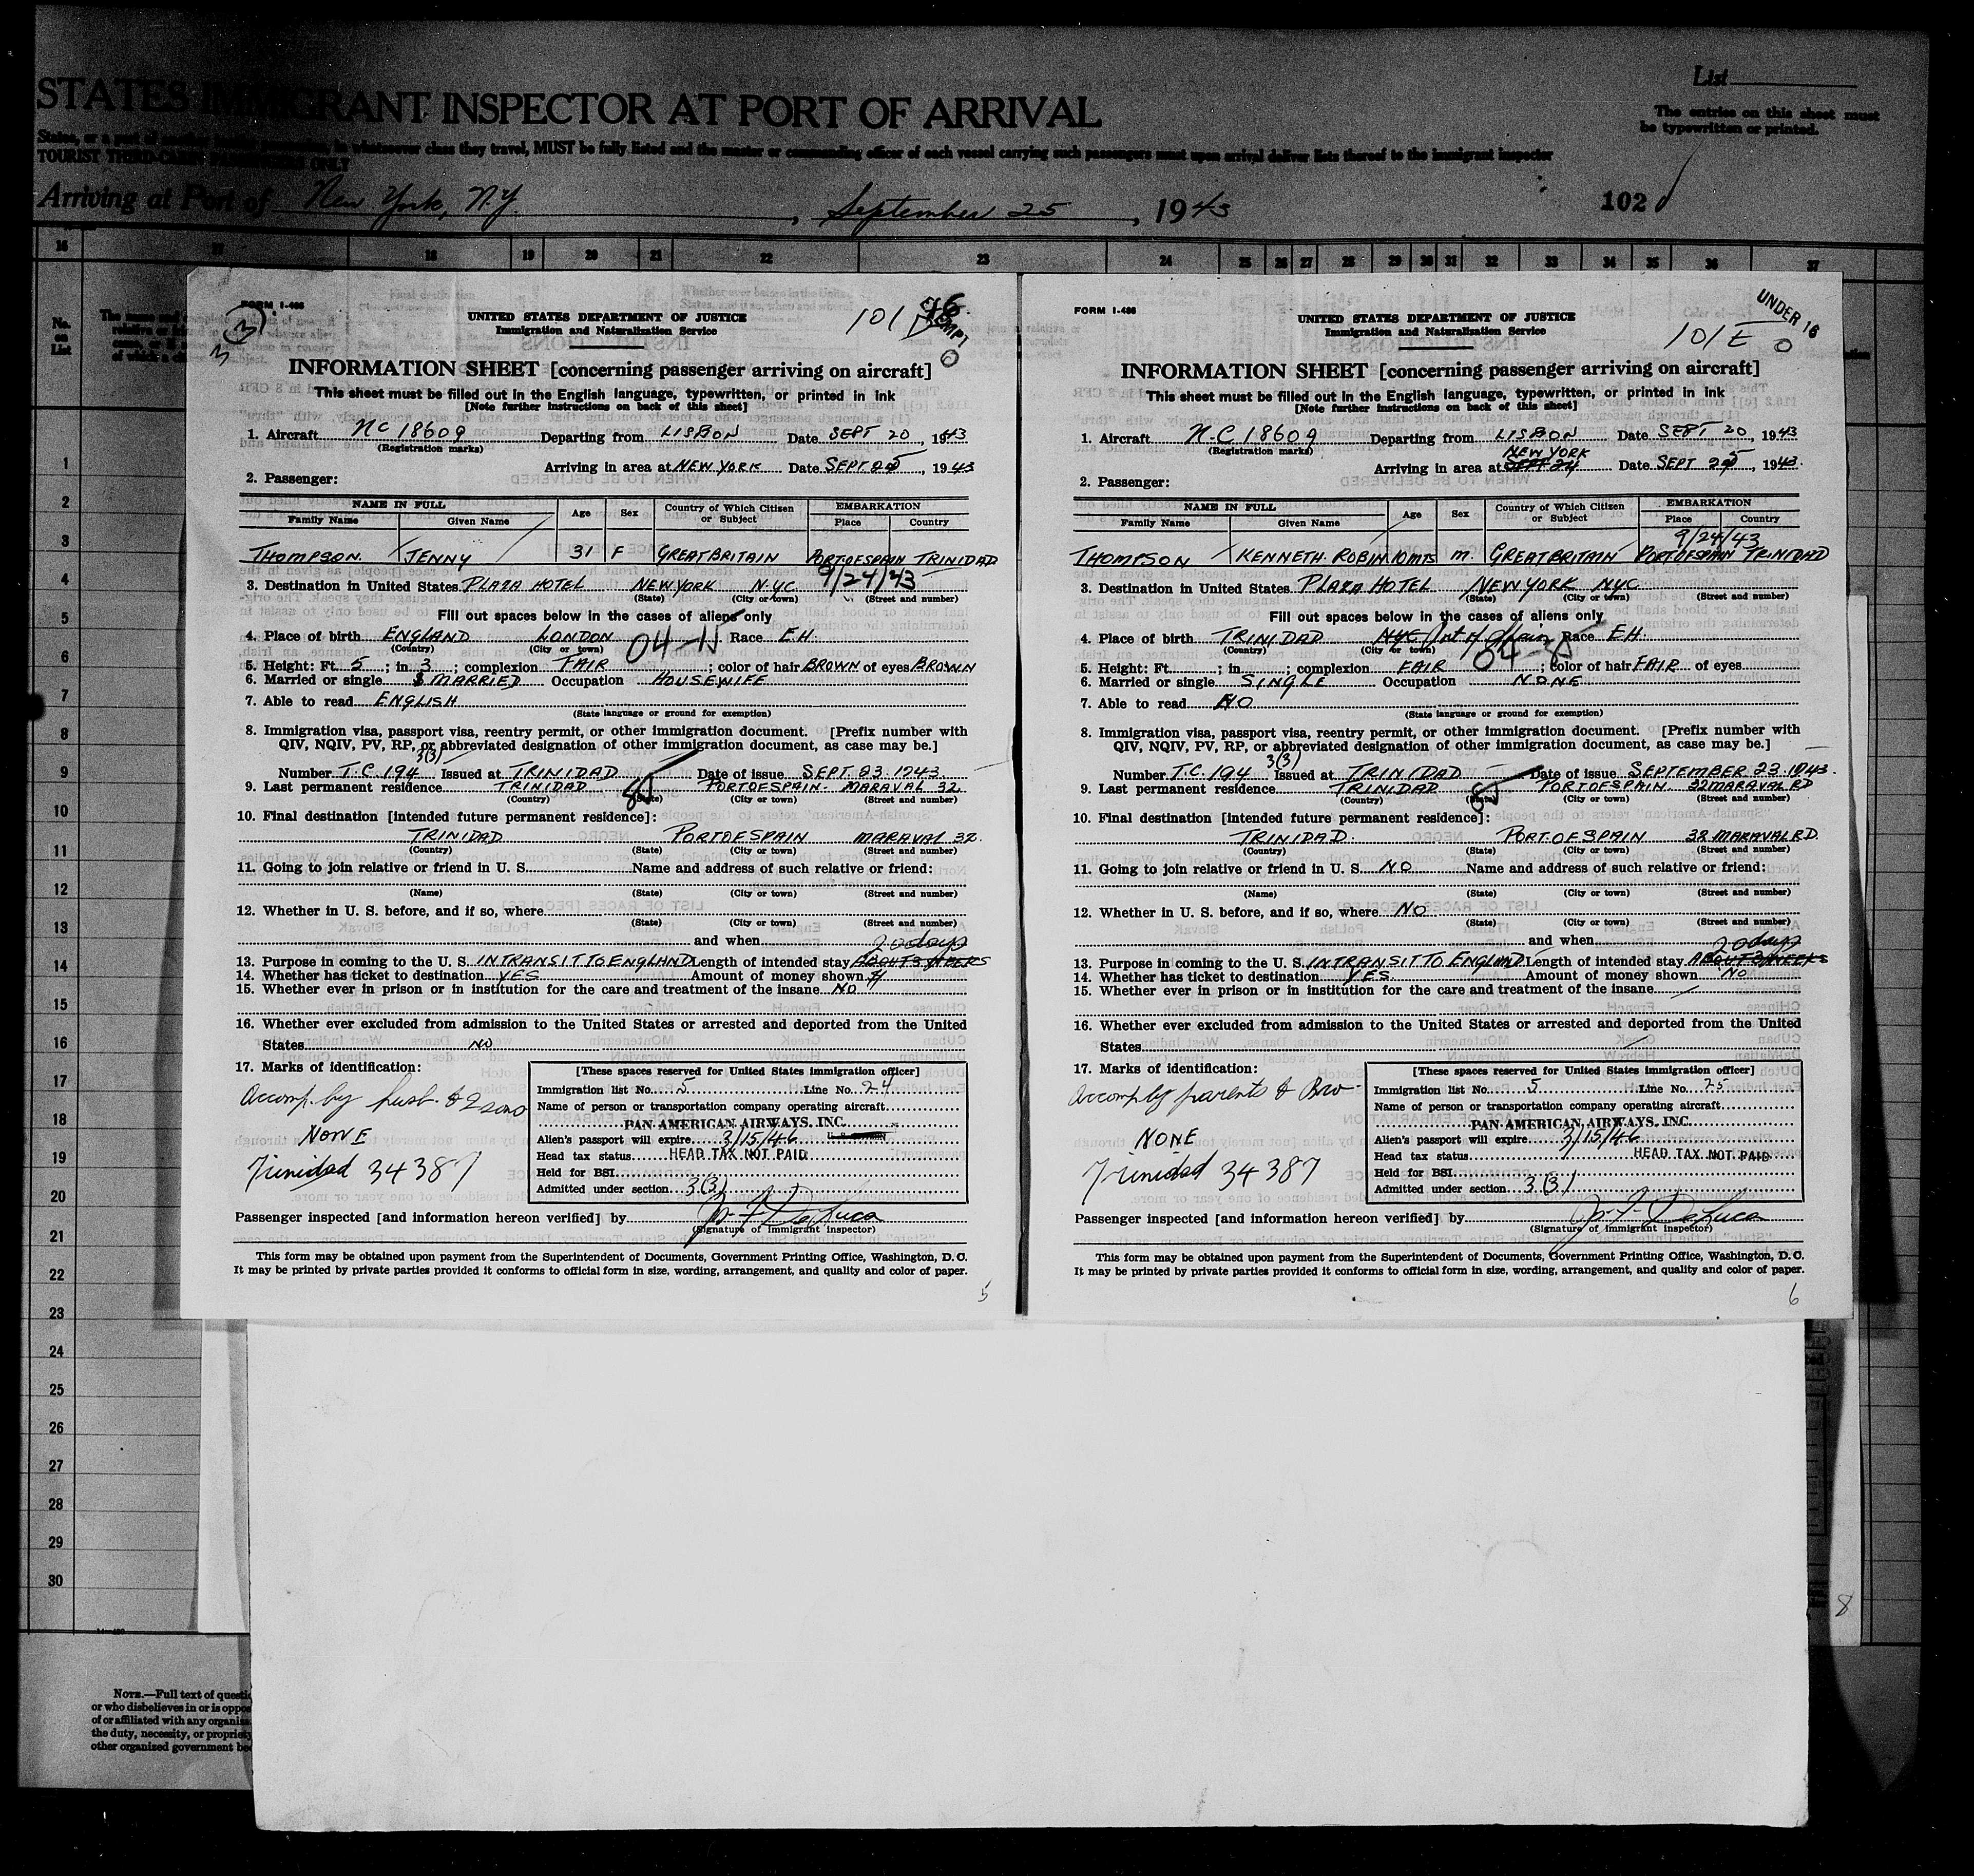 List
STATES IMMIGRANT INSPECTOR AT PORT OF ARRIVAL
The entries on this sheet must
be typewritten or printed.
whatsoever class they travel, MUST be fully listed and the master or commanding officer of each vessel carrying such passengers must upon arrival deliver lists thereof to the immigrant inspector
TOURIST THIRD-CABIN PASSENGERS ONLY
Arriving at Port of New York, N.Y. , September 25 , 1943
102
16 17 18 19 20 21 22 23 24 25 26 27 28 29 30 31 32 33 34 35 36 37
No. on List
1
2
3
4
5
6
7
8
9
10
11
12
13
14
15
16
17
18
19
20
21
22
23
24
25
26
27
28
29
30
FORM I-466
3
101
UNITED STATES DEPARTMENT OF JUSTICE
Immigration and Naturalization Service
INFORMATION SHEET [concerning passenger arriving on aircraft]
This sheet must be filled out in the English language, typewritten, or printed in ink
[Note further instructions on back of this sheet]
1. Aircraft NC 18609 Departing from LISBON Date SEPT 20, 1943
(Registration marks)
Arriving in area at NEW YORK Date SEPT 25, 1943
2. Passenger:
NAME IN FULL Age Sex Country of Which Citizen or Subject EMBARKATION
Family Name Given Name Place Country
THOMPSON. JENNY 31 F GREAT BRITAIN PORTOFSPAIN TRINIDAD
9/24/43
3. Destination in United States PLAZA HOTEL NEW YORK N.Y.C.
(State) (City or town) (Street and number)
Fill out spaces below in the cases of aliens only
4. Place of birth ENGLAND LONDON Race E.H.
(Country) (City or town)
5. Height: Ft. 5 ; in 3 ; complexion FAIR ; color of hair BROWN of eyes BROWN
6. Married or single MARRIED Occupation HOUSEWIFE
7. Able to read ENGLISH
(State language or ground for exemption)
8. Immigration visa, passport visa, reentry permit, or other immigration document. [Prefix number with
QIV, NQIV, PV, RP, or abbreviated designation of other immigration document, as case may be.]
3(3)
Number T.C. 194 Issued at TRINIDAD Date of issue SEPT 23 1943
9. Last permanent residence TRINIDAD PORTOFSPAIN. MARAVAL 32.
(Country) (State) (City or town) (Street and number)
10. Final destination [intended future permanent residence]:
TRINIDAD PORTOFSPAIN MARAVAL 32.
(Country) (State) (City or town) (Street and number)
11. Going to join relative or friend in U. S. Name and address of such relative or friend:
(Name) (State) (City or town) (Street and number)
12. Whether in U. S. before, and if so, where
(State) (City or town) (Street and number)
and when
20 days
13. Purpose in coming to the U. S. IN TRANSIT TO ENGLAND Length of intended stay ABOUT 3 WEEKS
14. Whether has ticket to destination YES Amount of money shown
15. Whether ever in prison or in institution for the care and treatment of the insane NO
16. Whether ever excluded from admission to the United States or arrested and deported from the United
States NO
17. Marks of identification:
Accomp. by husb. & 2 sons
NONE
Trinidad 34387
[These spaces reserved for United States immigration officer]
Immigration list No. 5 Line No. 24
Name of person or transportation company operating aircraft
PAN AMERICAN AIRWAYS, INC.
Alien's passport will expire 3/15/46
Head tax status HEAD TAX NOT PAID
Held for BSI
Admitted under section 3(3)
Passenger inspected [and information hereon verified] by
(Signature of immigrant inspector)
This form may be obtained upon payment from the Superintendent of Documents, Government Printing Office, Washington, D. C.
It may be printed by private parties provided it conforms to official form in size, wording, arrangement, and quality and color of paper.
5
FORM I-466
UNDER 16
101 E
0
UNITED STATES DEPARTMENT OF JUSTICE
Immigration and Naturalization Service
INFORMATION SHEET [concerning passenger arriving on aircraft]
This sheet must be filled out in the English language, typewritten, or printed in ink
[Note further instructions on back of this sheet]
1. Aircraft N.C 18609 Departing from LISBON Date SEPT 20, 1943
(Registration marks)
NEW YORK
Arriving in area at SEPT 24 Date SEPT 25, 1943.
2. Passenger:
NAME IN FULL Age Sex Country of Which Citizen or Subject EMBARKATION
Family Name Given Name Place Country
9/24/43
THOMPSON KENNETH. ROBIN 10 MTS M. GREAT BRITAIN PORTOFSPAIN TRINIDAD
3. Destination in United States PLAZA HOTEL NEW YORK NYC
(State) (City or town) (Street and number)
Fill out spaces below in the cases of aliens only
4. Place of birth TRINIDAD Race E.H.
(Country) (City or town)
5. Height: Ft. ; in ; complexion FAIR ; color of hair FAIR of eyes
6. Married or single SINGLE Occupation NONE
7. Able to read NO
(State language or ground for exemption)
8. Immigration visa, passport visa, reentry permit, or other immigration document. [Prefix number with
QIV, NQIV, PV, RP, or abbreviated designation of other immigration document, as case may be.]
3(3)
Number T.C. 194 Issued at TRINIDAD Date of issue SEPTEMBER 23 1943.
9. Last permanent residence TRINIDAD PORTOFSPAIN. 32 MARAVAL RD
(Country) (State) (City or town) (Street and number)
10. Final destination [intended future permanent residence]:
TRINIDAD. PORTOFSPAIN 32 MARAVAL RD.
(Country) (State) (City or town) (Street and number)
11. Going to join relative or friend in U. S. NO Name and address of such relative or friend:
(Name) (State) (City or town) (Street and number)
12. Whether in U. S. before, and if so, where NO
(State) (City or town) (Street and number)
and when
20 days
13. Purpose in coming to the U. S. IN TRANSIT TO ENGLAND Length of intended stay ABOUT 3 WEEKS
14. Whether has ticket to destination YES. Amount of money shown NO
15. Whether ever in prison or in institution for the care and treatment of the insane
16. Whether ever excluded from admission to the United States or arrested and deported from the United
States
17. Marks of identification:
Accomp by parents & Bro-
NONE
Trinidad 34387
[These spaces reserved for United States immigration officer]
Immigration list No. 5 Line No. 25
Name of person or transportation company operating aircraft
PAN AMERICAN AIRWAYS, INC.
Alien's passport will expire 3/15/46
Head tax status HEAD TAX NOT PAID
Held for BSI
Admitted under section 3(3)
Passenger inspected [and information hereon verified] by
(Signature of immigrant inspector)
This form may be obtained upon payment from the Superintendent of Documents, Government Printing Office, Washington, D. C.
It may be printed by private parties provided it conforms to official form in size, wording, arrangement, and quality and color of paper.
6
8
NOTE.—Full text of
or who disbelieves in or is
of or affiliated with any
the duty, necessity, or
other organized government